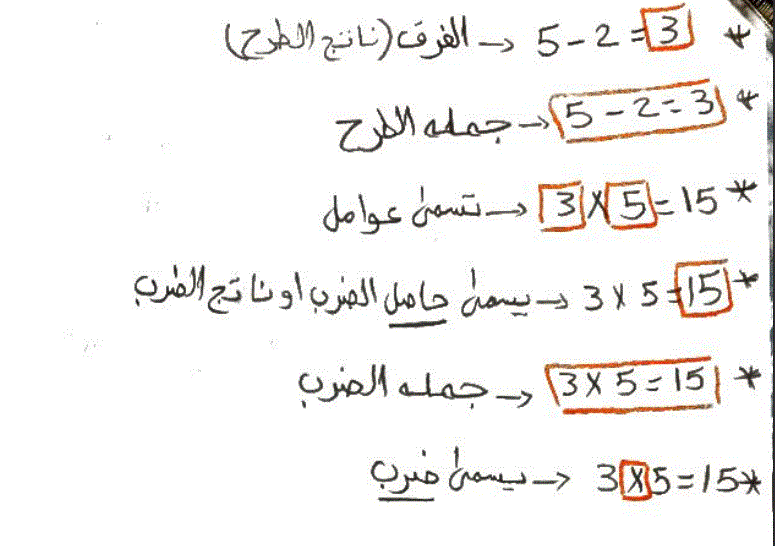 * 5 - 2 = 3 → الفرق (ناتج الطرح)
* 5 - 2 = 3 → جمله الطرح
* 3 × 5 = 15 → تسمى عوامل
* 3 × 5 = 15 → يسمى حاصل الضرب او ناتج الضرب
* 3 × 5 = 15 → جمله الضرب
* 3 × 5 = 15 → يسمى ضرب